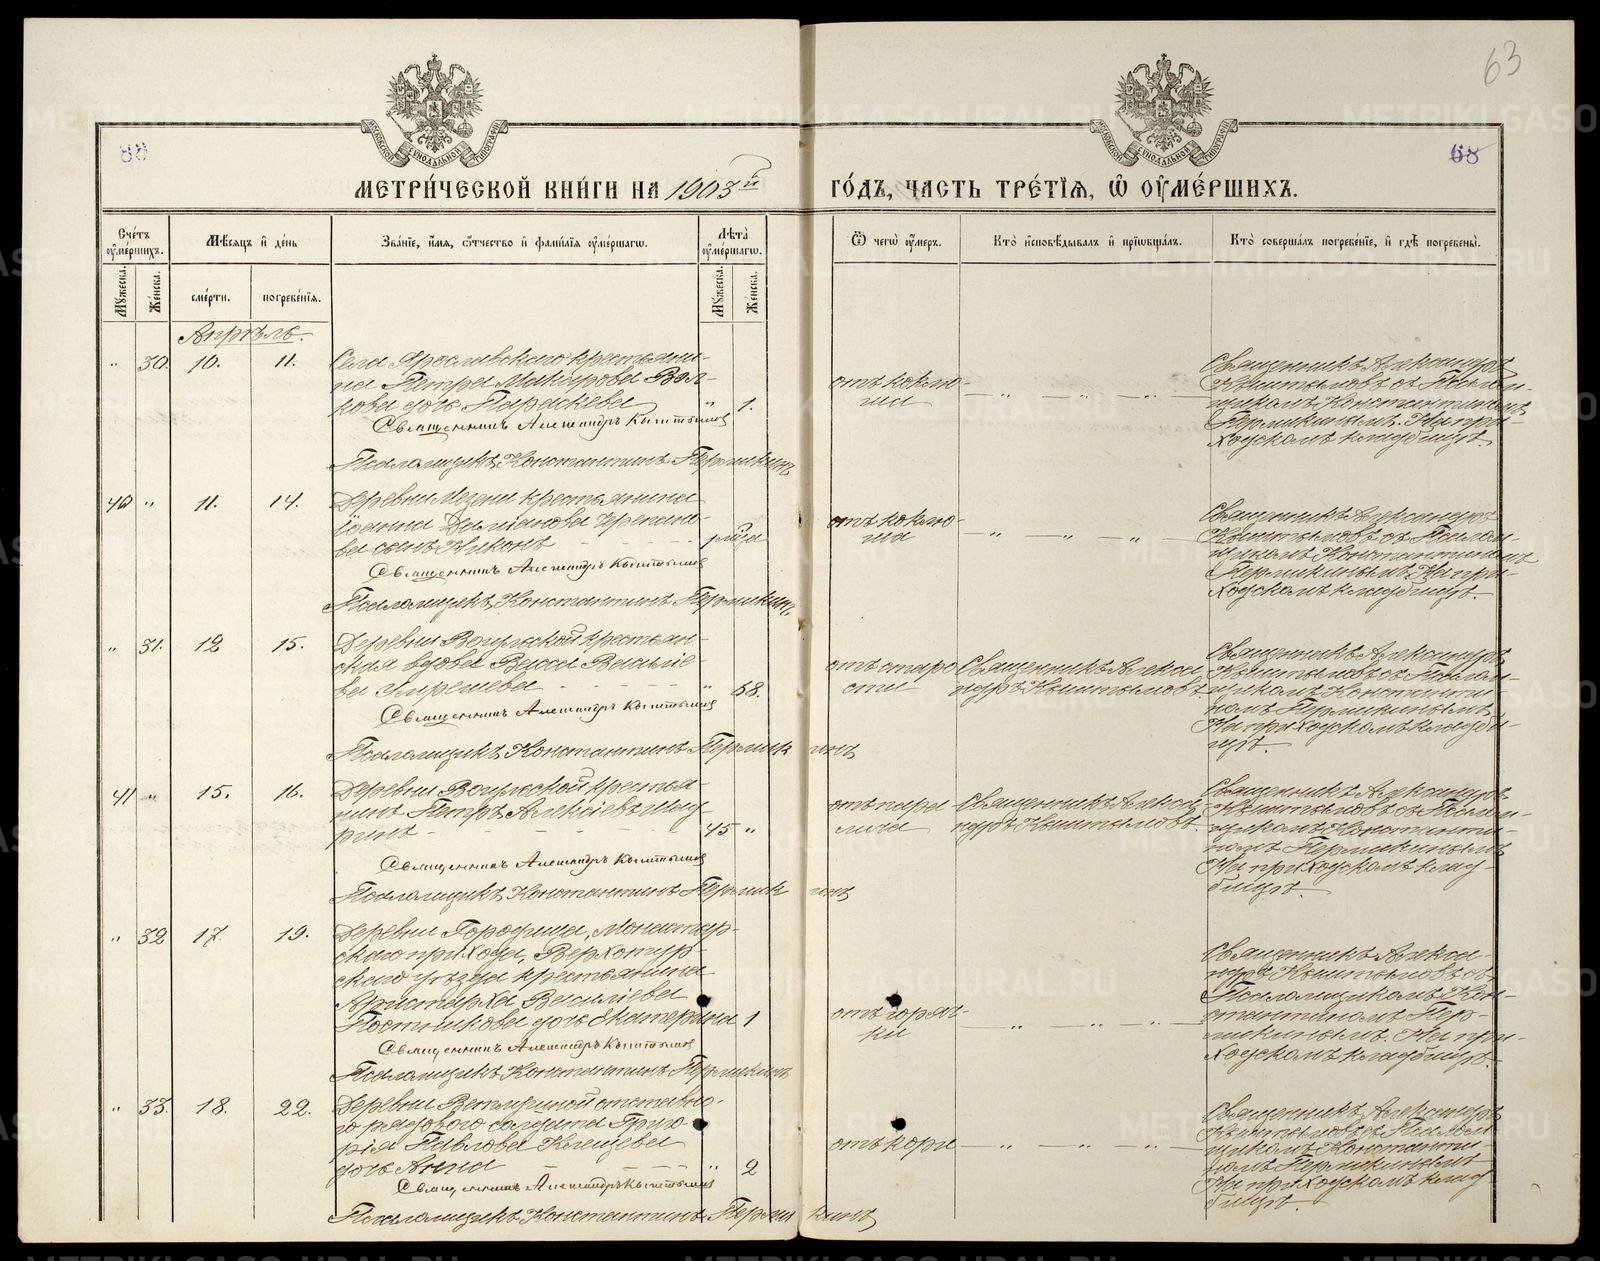 63
88
68
МЕТРИ́ЧЕСКОЙ КНИ́ГИ НА 1903й ГО́ДЪ, ЧАСТЬ ТРЕ́ТІѦ, Ѿ ОУМЕ́РШИХЪ.
Счетъ оумершихъ.
Мужеска.
Женска.
Мѣсяцъ и день
смерти.
погребенія.
Званіе, имя, отчество и фамилія оумершаго.
Лѣта оумершаго.
Мужеска.
Женска.
Ѿ чего оумеръ.
Кто исповѣдывалъ и пріобщалъ.
Кто совершалъ погребеніе, и гдѣ погребены.
Апрѣль.
" 30. 10. 11.
Села Ярославскаго крестьяни-
на Петра Макарова Вол-
кова дочь Параскева " 1.
Священникъ Александръ Кыштымовъ
Псаломщикъ Константинъ Пермикинъ
отъ коклю-
ша
Священникъ Александръ
Кыштымовъ съ Псалом-
щикомъ Константиномъ
Пермикинымъ. На при-
ходскомъ кладбищѣ.
40 " 11. 14.
крестьянина
Іоанна Даміанова Черепано-
ва сынъ Никонъ
Священникъ Александръ Кыштымовъ
Псаломщикъ Константинъ Пермикинъ
отъ коклю-
ша
Священникъ Александръ
Кыштымовъ съ Псалом-
щикомъ Константиномъ
Пермикинымъ. На при-
ходскомъ кладбищѣ.
" 31. 12 15.
Деревни Вогульской крестьян-
ская вдова Васса Василіе-
ва " 58.
Священникъ Александръ Кыштымовъ
Псаломщикъ Константинъ Пермикинъ
отъ старо
сти
Священникъ Алекса
ндръ Кыштымовъ
Священникъ Александръ
Кыштымовъ съ Псалом-
щикомъ Константи-
номъ Пермикинымъ
На приходскомъ кладби-
щѣ.
41 " 15. 16.
Деревни Вогульской крестья-
нинъ Петръ Алексіевъ
45 "
Священникъ Александръ Кыштымовъ
Псаломщикъ Константинъ Пермикинъ
отъ пара
лича
Священникъ Алекса
ндръ Кыштымовъ.
Священникъ Александръ
Кыштымовъ съ Псалом-
щикомъ Константи-
номъ Пермикинымъ
На приходскомъ клад-
бищѣ.
" 32 17. 19.
Деревни Городища, Монастыр-
скаго прихода, Верхотур-
скаго уѣзда крестьянина
Аристарха Василіева
Постникова дочь Екатерина 1
Священникъ Александръ Кыштымовъ
Псаломщикъ Константинъ Пермикинъ
отъ горяч-
ки
Священникъ Алекса-
ндръ Кыштымовъ съ
Псаломщикомъ Кон-
стантиномъ Пер-
микинымъ. На при-
ходскомъ кладбищѣ.
" 33. 18. 22.
Деревни отставно-
го рядового солдата Григо-
рія Павлова Клещева
дочь Анна " 2
Священникъ Александръ Кыштымовъ
Псаломщикъ Константинъ Пермикинъ
отъ кори
Священникъ Александръ
Кыштымовъ съ Псалом
щикомъ Константи-
номъ Пермикинымъ
На приходскомъ клад
бищѣ.